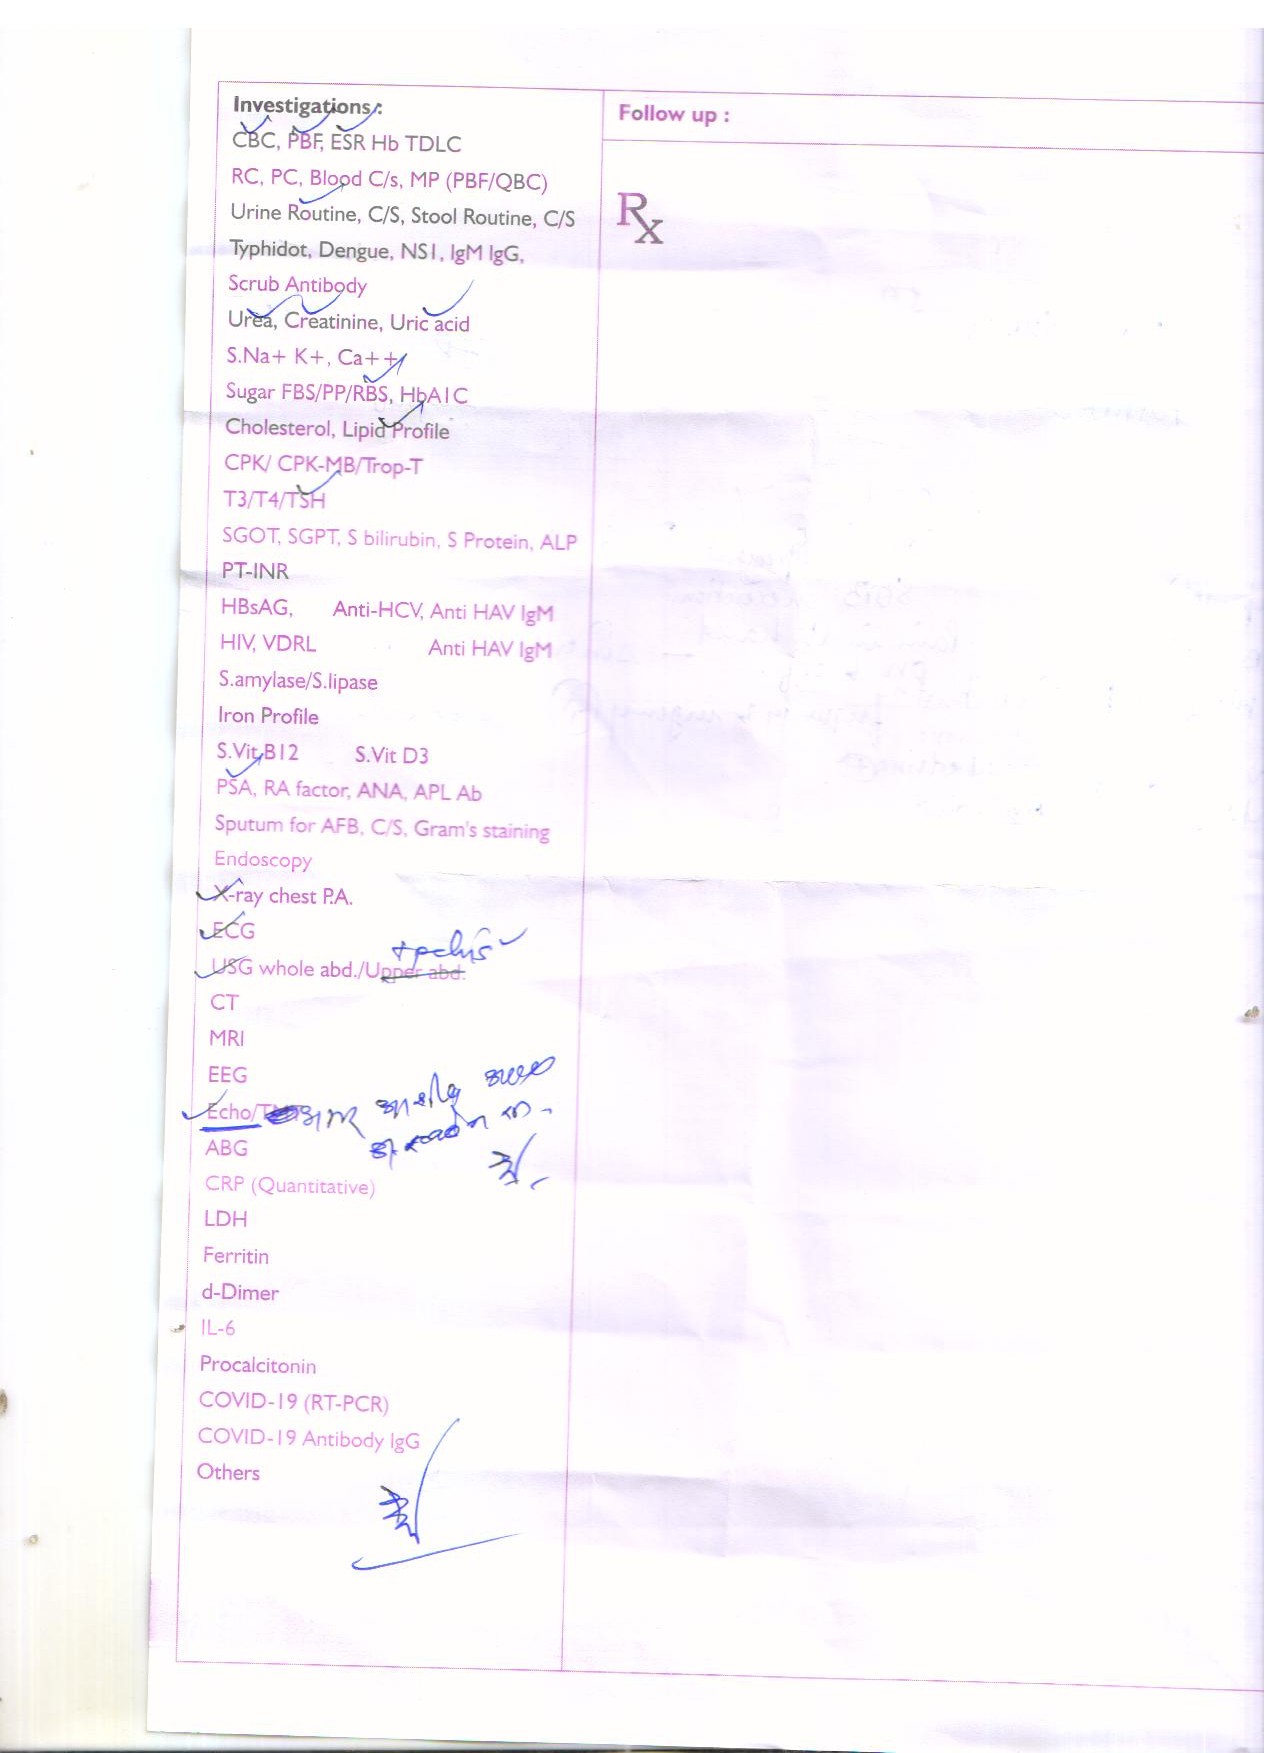 Investigations :
CBC, PBF, ESR Hb TDLC
RC, PC, Blood C/s, MP (PBF/QBC)
Urine Routine, C/S, Stool Routine, C/S
Typhidot, Dengue, NS1, IgM IgG,
Scrub Antibody
Urea, Creatinine, Uric acid
S.Na+ K+, Ca++
Sugar FBS/PP/RBS, HbA1C
Cholesterol, Lipid Profile
CPK/ CPK-MB/Trop-T
T3/T4/TSH
SGOT, SGPT, S bilirubin, S Protein, ALP
PT-INR
HBsAG, Anti-HCV, Anti HAV IgM
HIV, VDRL Anti HAV IgM
S.amylase/S.lipase
Iron Profile
S.Vit,B12 S.Vit D3
PSA, RA factor, ANA, APL Ab
Sputum for AFB, C/S, Gram's staining
Endoscopy
X-ray chest P.A.
ECG
+ pelvis
USG whole abd./Upper abd.
CT
MRI
EEG
Echo/
ABG
CRP (Quantitative)
LDH
Ferritin
d-Dimer
IL-6
Procalcitonin
COVID-19 (RT-PCR)
COVID-19 Antibody IgG
Others
Follow up :
Rx